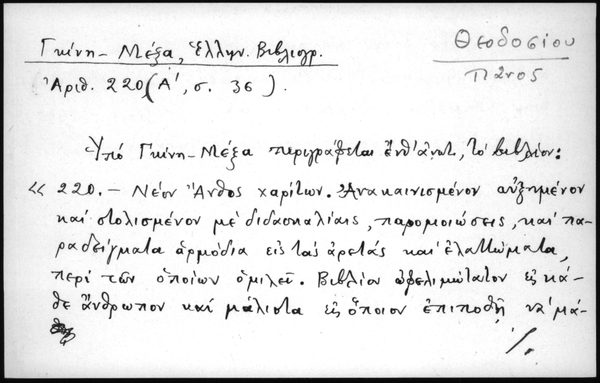 Θεοδοσίου
Πάνος
Γκίνη - Μέξα, Ἑλλην. Βιβλιογρ.
Ἀριθ. 220 (Α', σ. 36).
Ὑπό Γκίνη-Μέξα περιγράφεται ἐνθ' ἀνωτ., τό βιβλίον:
« 220. - Νέον Ἄνθος χαρίτων. Ἀνακαινισμένον αὐξημένον
καί στολισμένον μέ διδασκαλίαις, παρομοιώσεις, καί πα-
ραδείγματα ἁρμόδια εἰς τάς ἀρετάς καί ἐλαττώματα,
περί τῶν ὁποίων ὁμιλεῖ. Βιβλίον ὠφελιμώτατον εἰς κά-
θε ἄνθρωπον καί μάλιστα εἰς ὅποιον ἐπιποθῇ νά μά-
θῃ
./.